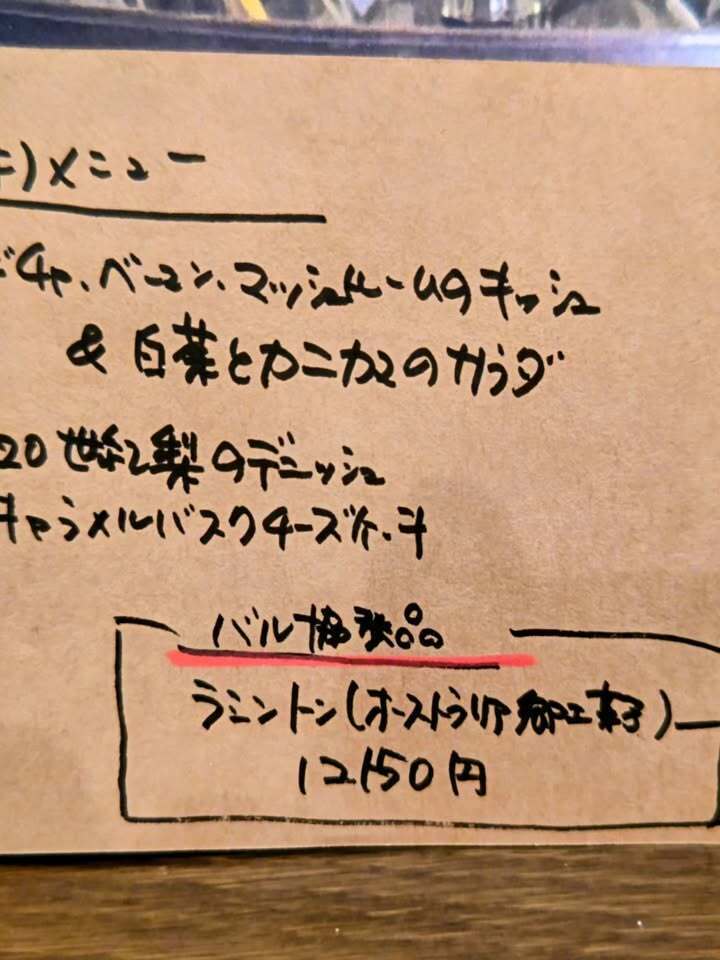 メニュー
ボチャ、ベーコン、マッシュルームのキッシュ
& 白菜とカニカマのサラダ
20世紀梨のデニッシュ
キャラメルバスクチーズケーキ
バル協賛品
ラミントン(オーストラリア郷土菓子)
1コ150円